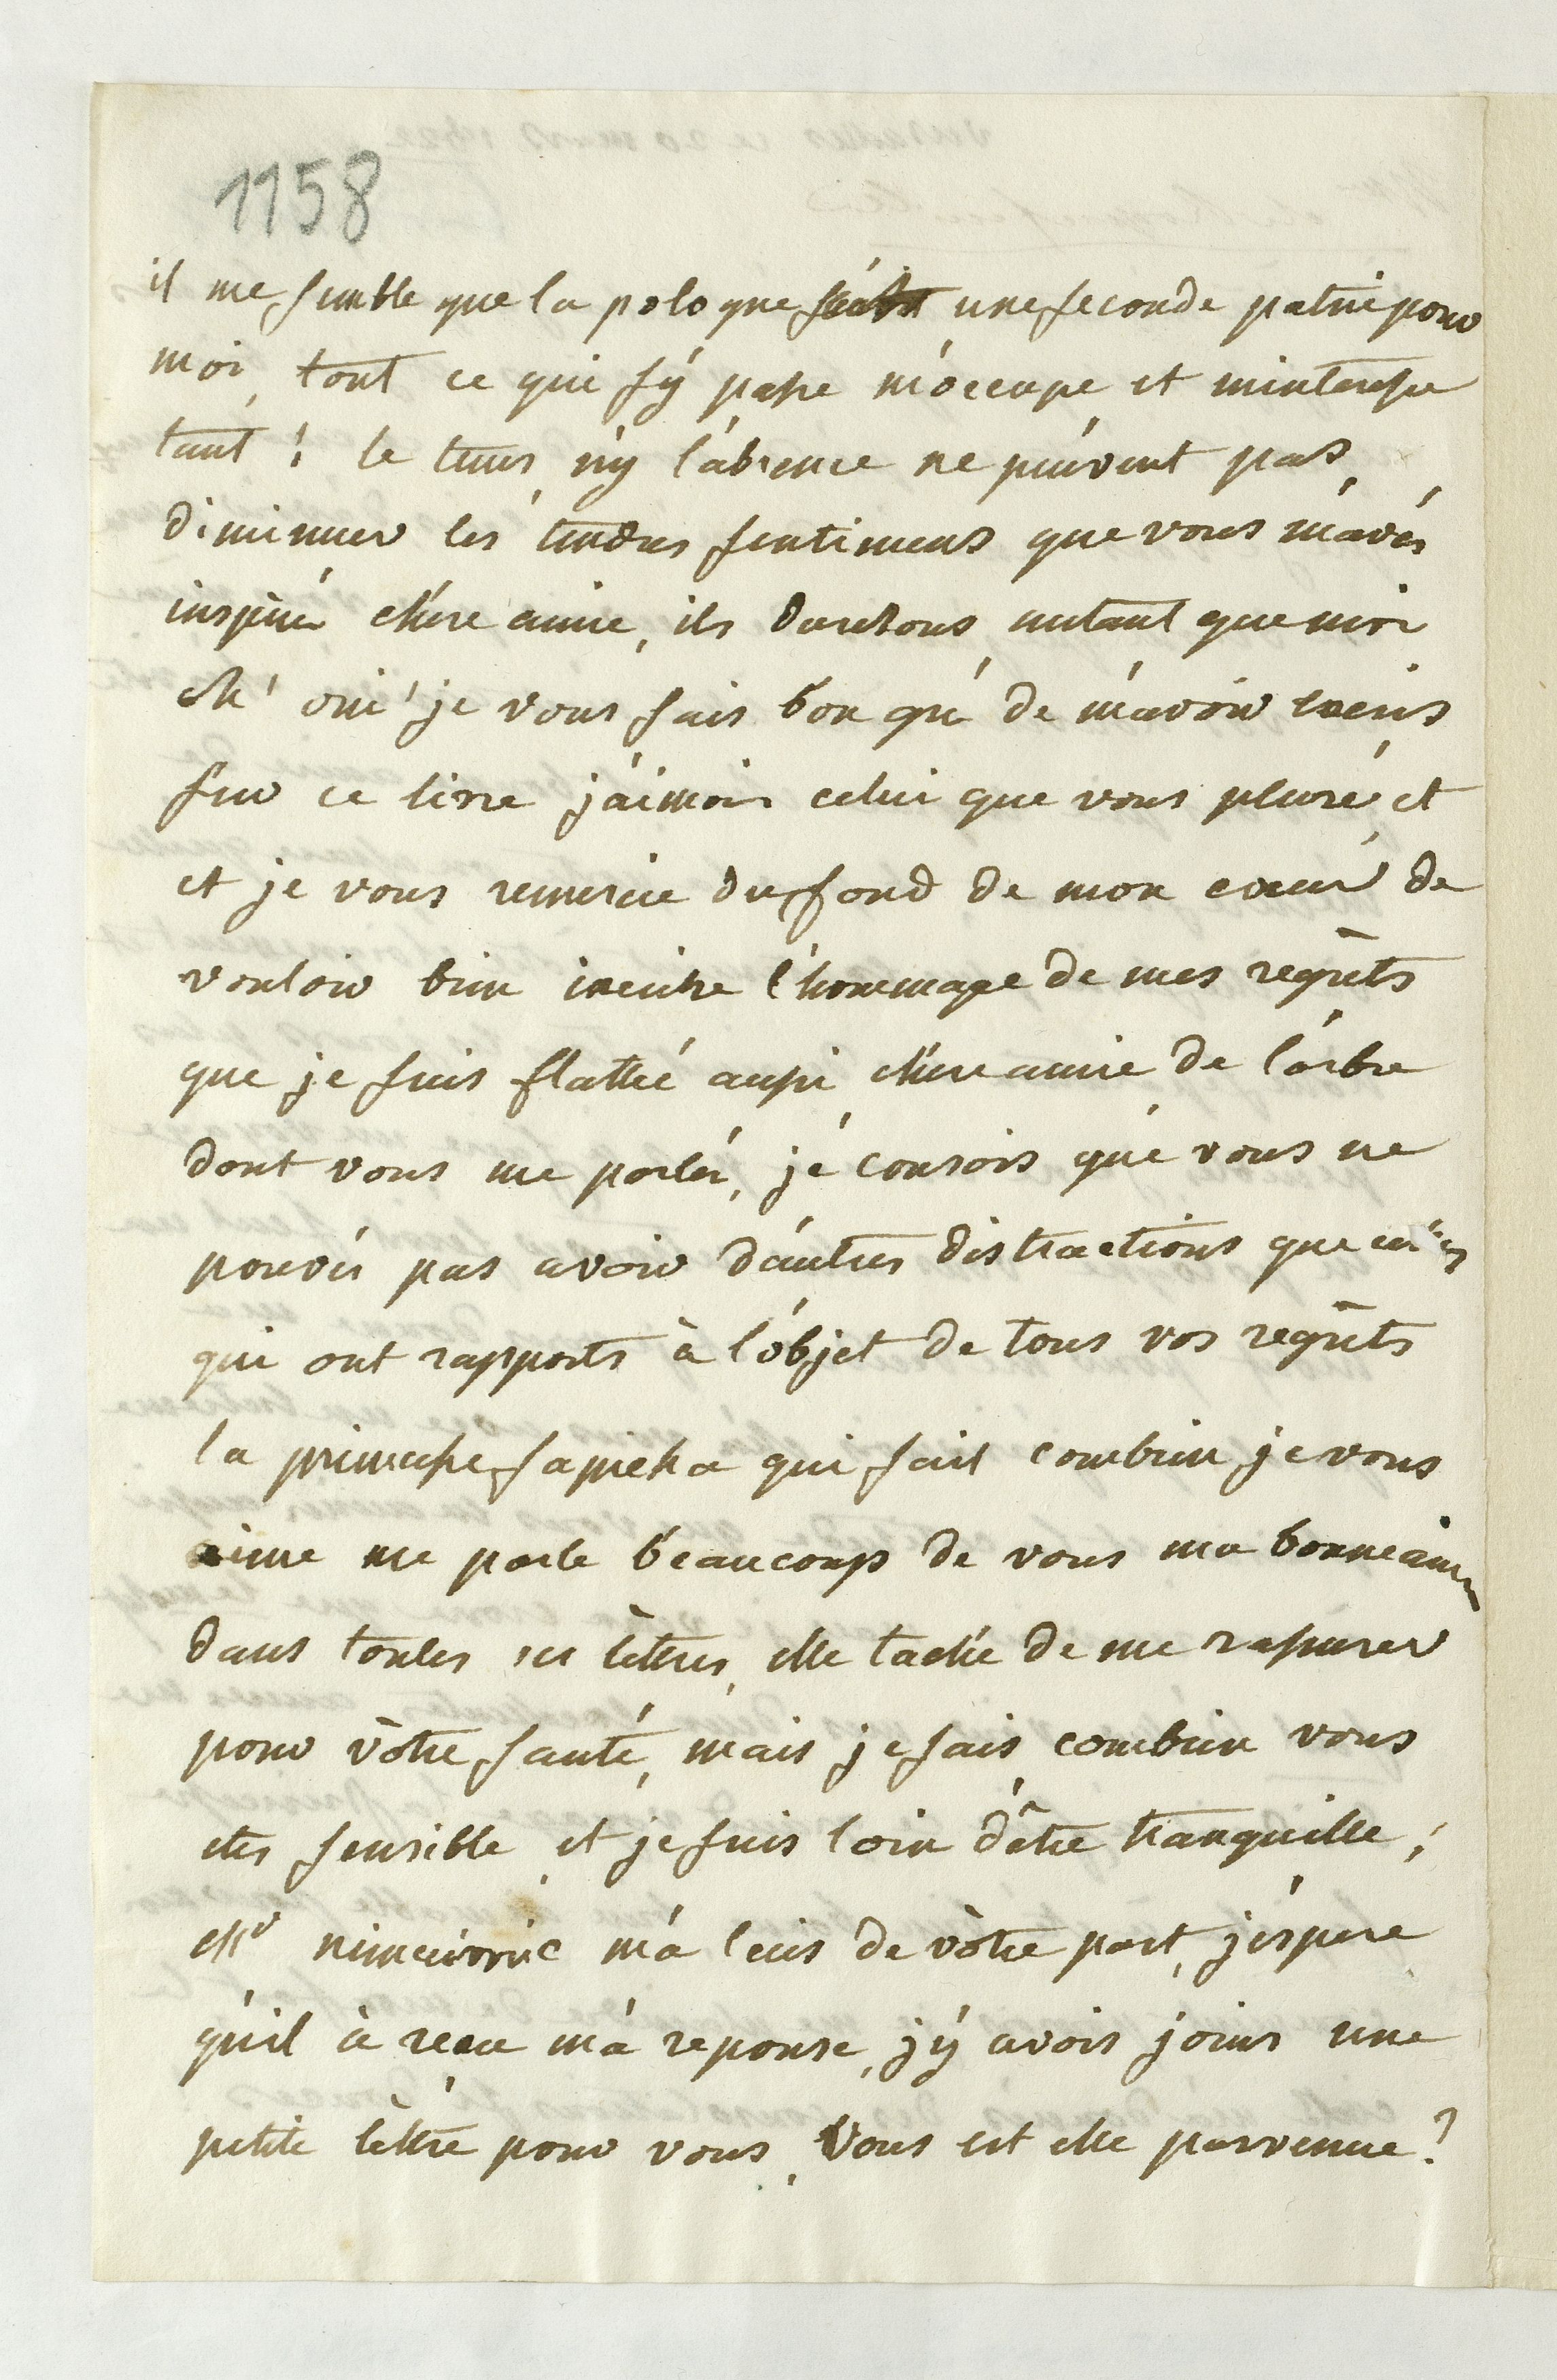 1158
il me semble que la pologne une seconde patrie pour
moi, tout ce qui s'y passe m'occupe et m'interesse
tant ! le tems n'y l'absence ne peuvent pas
diminuer les tendres sentimens que vous m'avés
inspiré chere amie, ils dureront autant que moi
ah ! oui ! je vous sais bon gré de m'avoir inscris
sur ce livre j'aimois celui que vous pleuré, et
et je vous remercie du fond de mon coeur de
vouloir bien inscrire l'hommage de mes regrèts
que je suis flattée aussi chere amie de l'arbre
dont vous me parlés, je consois que vous ne
pouvés pas avoir d'autres distractions que celles
qui ont rapports à l'objet de tous vos regrèts
la princesse sapieha qui sait combien je vous
aime me parle beaucoup de vous ma bonne amie
dans toutes ses lèttres, elle tache de me rassurer
pour vôtre santé, mais je sais combien vous
etes sensible et je suis loin d'être tranquille ;
Mr nimceiovic m'a écris de vôtre part, j'espere
qu'il à recu ma reponse, j'y avois joins une
petite lèttre pour vous, Vous est elle parvenue ?